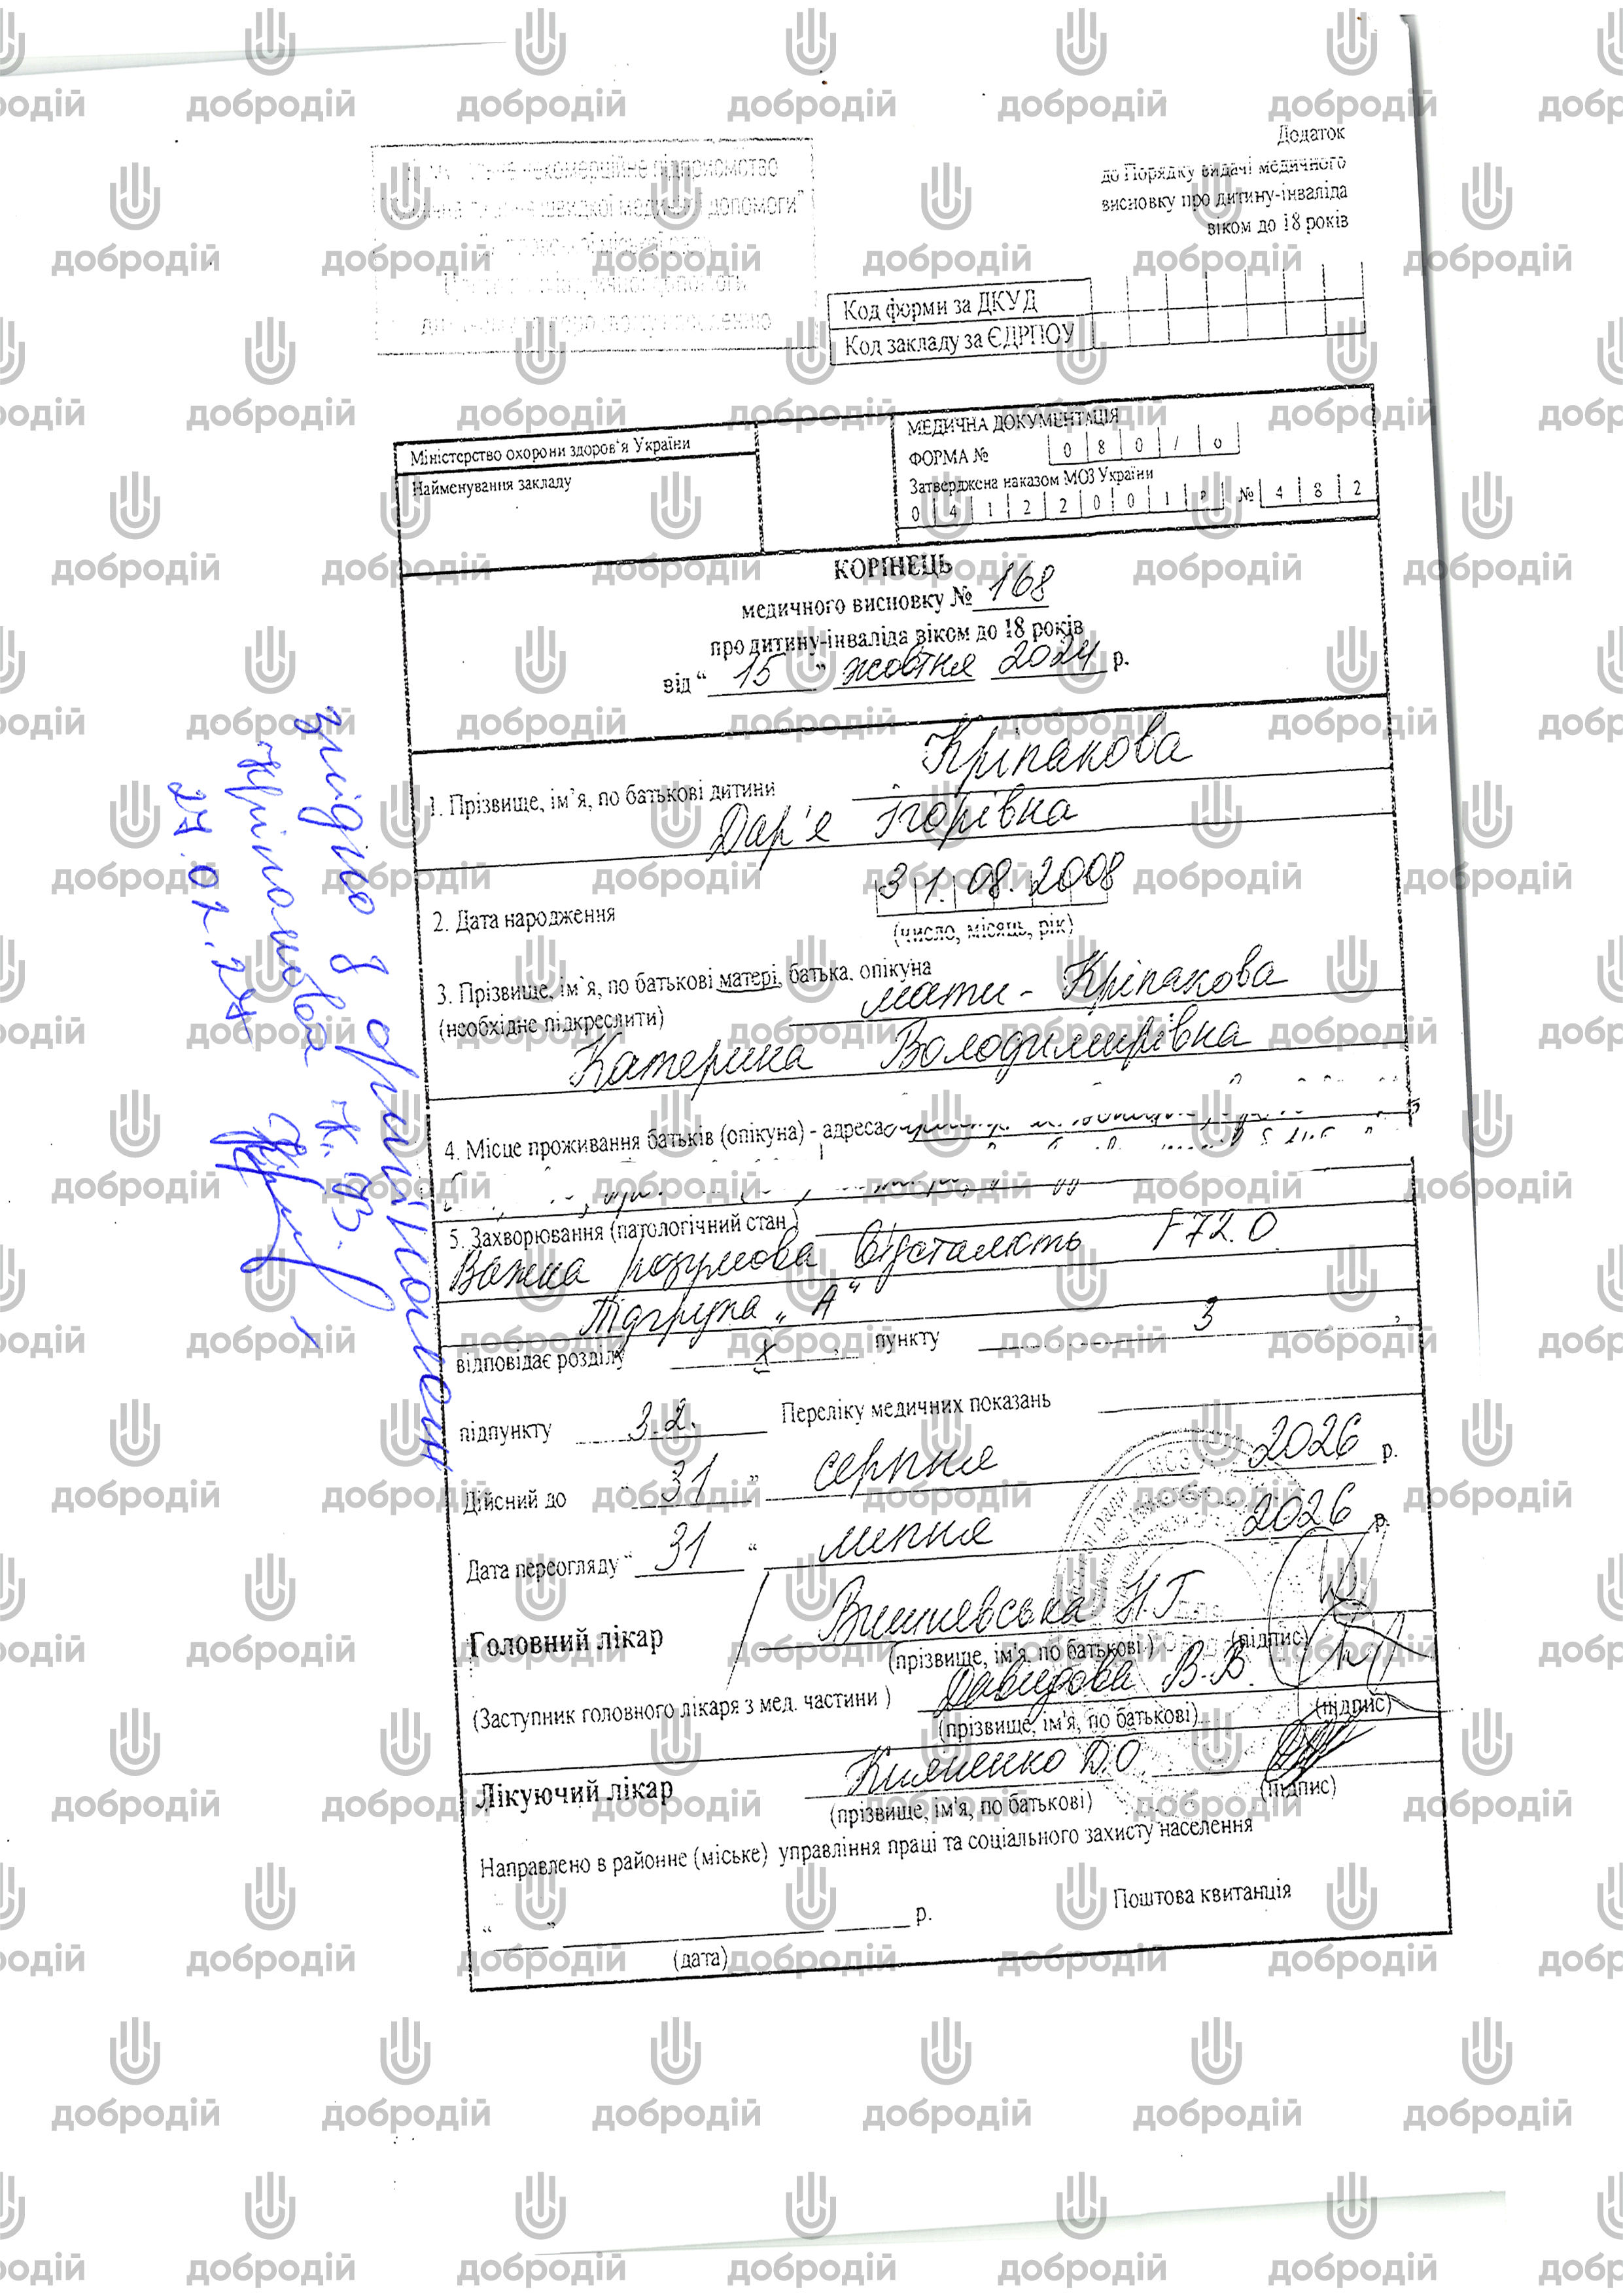 Додаток
до Порядку видачі медичного
висновку про дитину-інваліда
віком до 18 років
некомерційне підприємство
швидкої медичної допомоги"
допомоги
Код форми за ДКУД
Код закладу за ЄДРПОУ
Міністерство охорони здоров'я України
Найменування закладу
МЕДИЧНА ДОКУМЕНТАЦІЯ
ФОРМА № 0 8 0 / о
Затверджена наказом МОЗ України
0 4 1 2 2 0 0 1 р № 4 8 2
КОРІНЕЦЬ
медичного висновку № 168
про дитину-інваліда віком до 18 років
від "15" жовтня 2024 р.
1. Прізвище, ім'я, по батькові дитини Кріпакова
Дар'я Ігорівна
2. Дата народження 31.08.2008
(число, місяць, рік)
3. Прізвище, ім'я, по батькові матері, батька, опікуна
(необхідне підкреслити) мати - Кріпакова
Катерина Володимирівна
4. Місце проживання батьків (опікуна) - адреса
5. Захворювання (патологічний стан)
Важка розумова відсталість F72.0
Підгрупа "А"
відповідає розділу X, пункту 3,
підпункту 3.2. Переліку медичних показань
Дійсний до "31" серпня 2026 р.
Дата переогляду "31" липня 2026 р.
Головний лікар Вишневська Н.Г.
(прізвище, ім'я, по батькові) (підпис)
(Заступник головного лікаря з мед. частини) Давидова В.В.
(прізвище, ім'я, по батькові) (підпис)
Лікуючий лікар Кияненко Д.О.
(прізвище, ім'я, по батькові) (підпис)
Направлено в районне (міське) управління праці та соціального захисту населення
"___" ___ р. Поштова квитанція
(дата)
згідно з оригіналом
Кріпакова К. В.
добродій